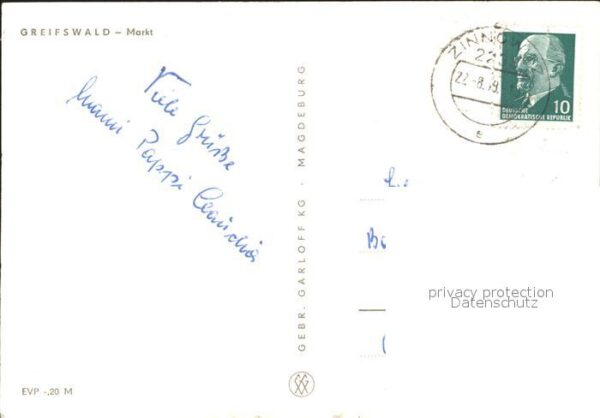 GREIFSWALD – Markt
Viele Grüße
Mammi Pappi Claudia
EVP -,20 M
GEBR. GARLOFF KG · MAGDEBURG
ZINNOW
22.-8.79
e
10
DEUTSCHE
DEMOKRATISCHE REPUBLIK
privacy protection
Datenschutz